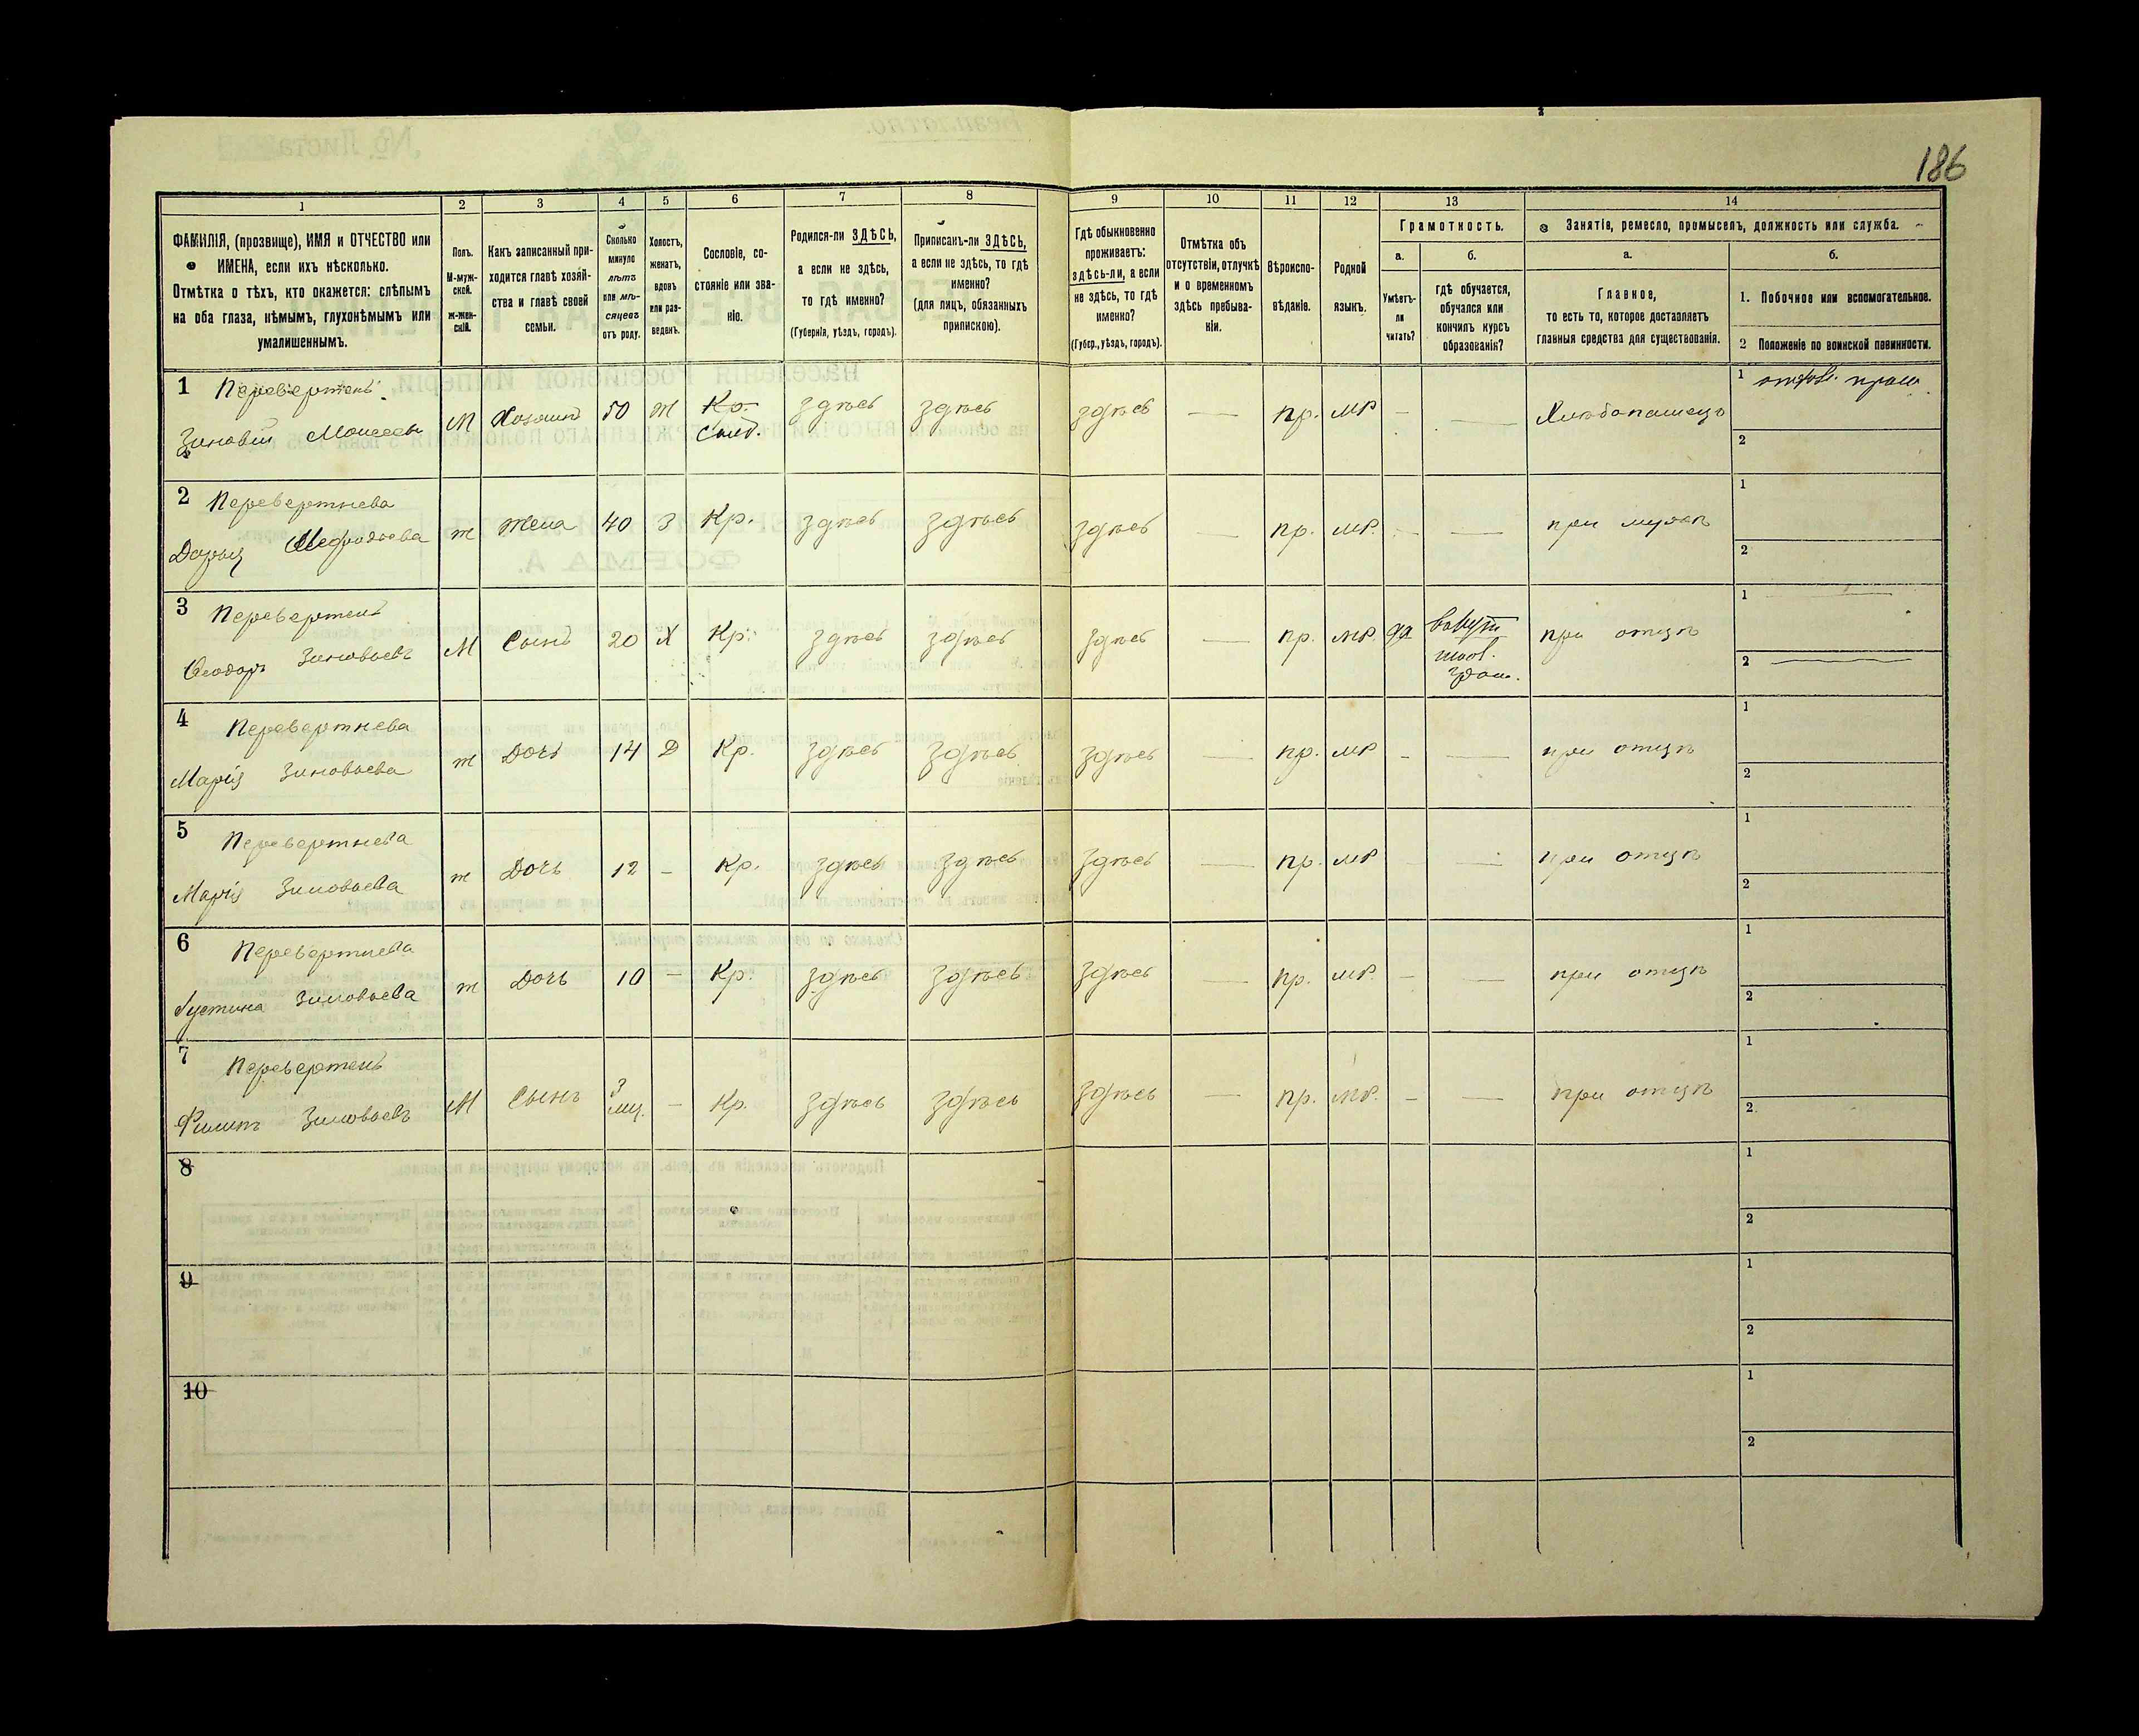 186
1 2 3 4 5 6 7 8 9 10 11 12 13 14
ФАМИЛІЯ, (прозвище), ИМЯ и ОТЧЕСТВО или
ИМЕНА, если ихъ нѣсколько.
Отмѣтка о тѣхъ, кто окажется: слѣпымъ
на оба глаза, нѣмымъ, глухонѣмымъ или
умалишеннымъ.
Полъ.
М-муж-
ской.
ж-жен-
скій.
Какъ записанный при-
ходится главѣ хозяй-
ства и главѣ своей
семьи.
Сколько
минуло
лѣтъ
или мѣ-
сяцевъ
отъ роду.
Холостъ,
женатъ,
вдовъ
или раз-
веденъ.
Сословіе, со-
стояніе или зва-
ніе.
Родился-ли ЗДѢСЬ,
а если не здѣсь,
то гдѣ именно?
(Губернія, уѣздъ, городъ).
Приписанъ-ли ЗДѢСЬ,
а если не здѣсь, то гдѣ
именно?
(для лицъ, обязанныхъ
припискою).
Гдѣ обыкновенно
проживаетъ:
здѣсь-ли, а если
не здѣсь, то гдѣ
именно?
(Губер., уѣздъ, городъ).
Отмѣтка объ
отсутствіи, отлучкѣ
и о временномъ
здѣсь пребыва-
ніи.
Вѣроиспо-
вѣданіе.
Родной
языкъ.
Грамотность.
а.
Умѣетъ-
ли
читать?
б.
гдѣ обучается,
обучался или
кончилъ курсъ
образованія?
Занятія, ремесло, промыселъ, должность или служба.
а.
Главное,
то есть то, которое доставляетъ
главныя средства для существованія.
б.
1. Побочное или вспомогательное.
2 Положеніе по воинской повинности.
1 Перевертень
Зиновій Моисеевъ М Хозяинъ 50 Ж Кр. здѣсь здѣсь здѣсь — пр. мр — — Хлѣбопашецъ 1
2
2 Перевертнева
Дарья Мефодьева ж жена 40 З Кр. здѣсь здѣсь здѣсь — пр. мр. — — при мужѣ 1
2
3 Перевертень
Ѳеодоръ Зиновьевъ М Сынъ 20 Х Кр. здѣсь здѣсь здѣсь — пр. мр. да при отцѣ 1 —
2 —
4 Перевертнева
Марія Зиновьева ж Дочь 14 Д Кр. здѣсь здѣсь здѣсь — пр. мр — — при отцѣ 1
2
5 Перевертнева
Марія Зиновьева ж Дочь 12 — Кр. здѣсь здѣсь здѣсь — пр. мр — при отцѣ 1
2
6 Перевертнева
Іустина Зиновьева ж Дочь 10 — Кр. здѣсь здѣсь здѣсь — пр. мр. — — при отцѣ 1
2
7 Перевертень
Филипъ Зиновьевъ М Сынъ 3 мц. — Кр. здѣсь здѣсь здѣсь — пр. мр. — — при отцѣ 1
2
8 1
2
9 1
2
10 1
2